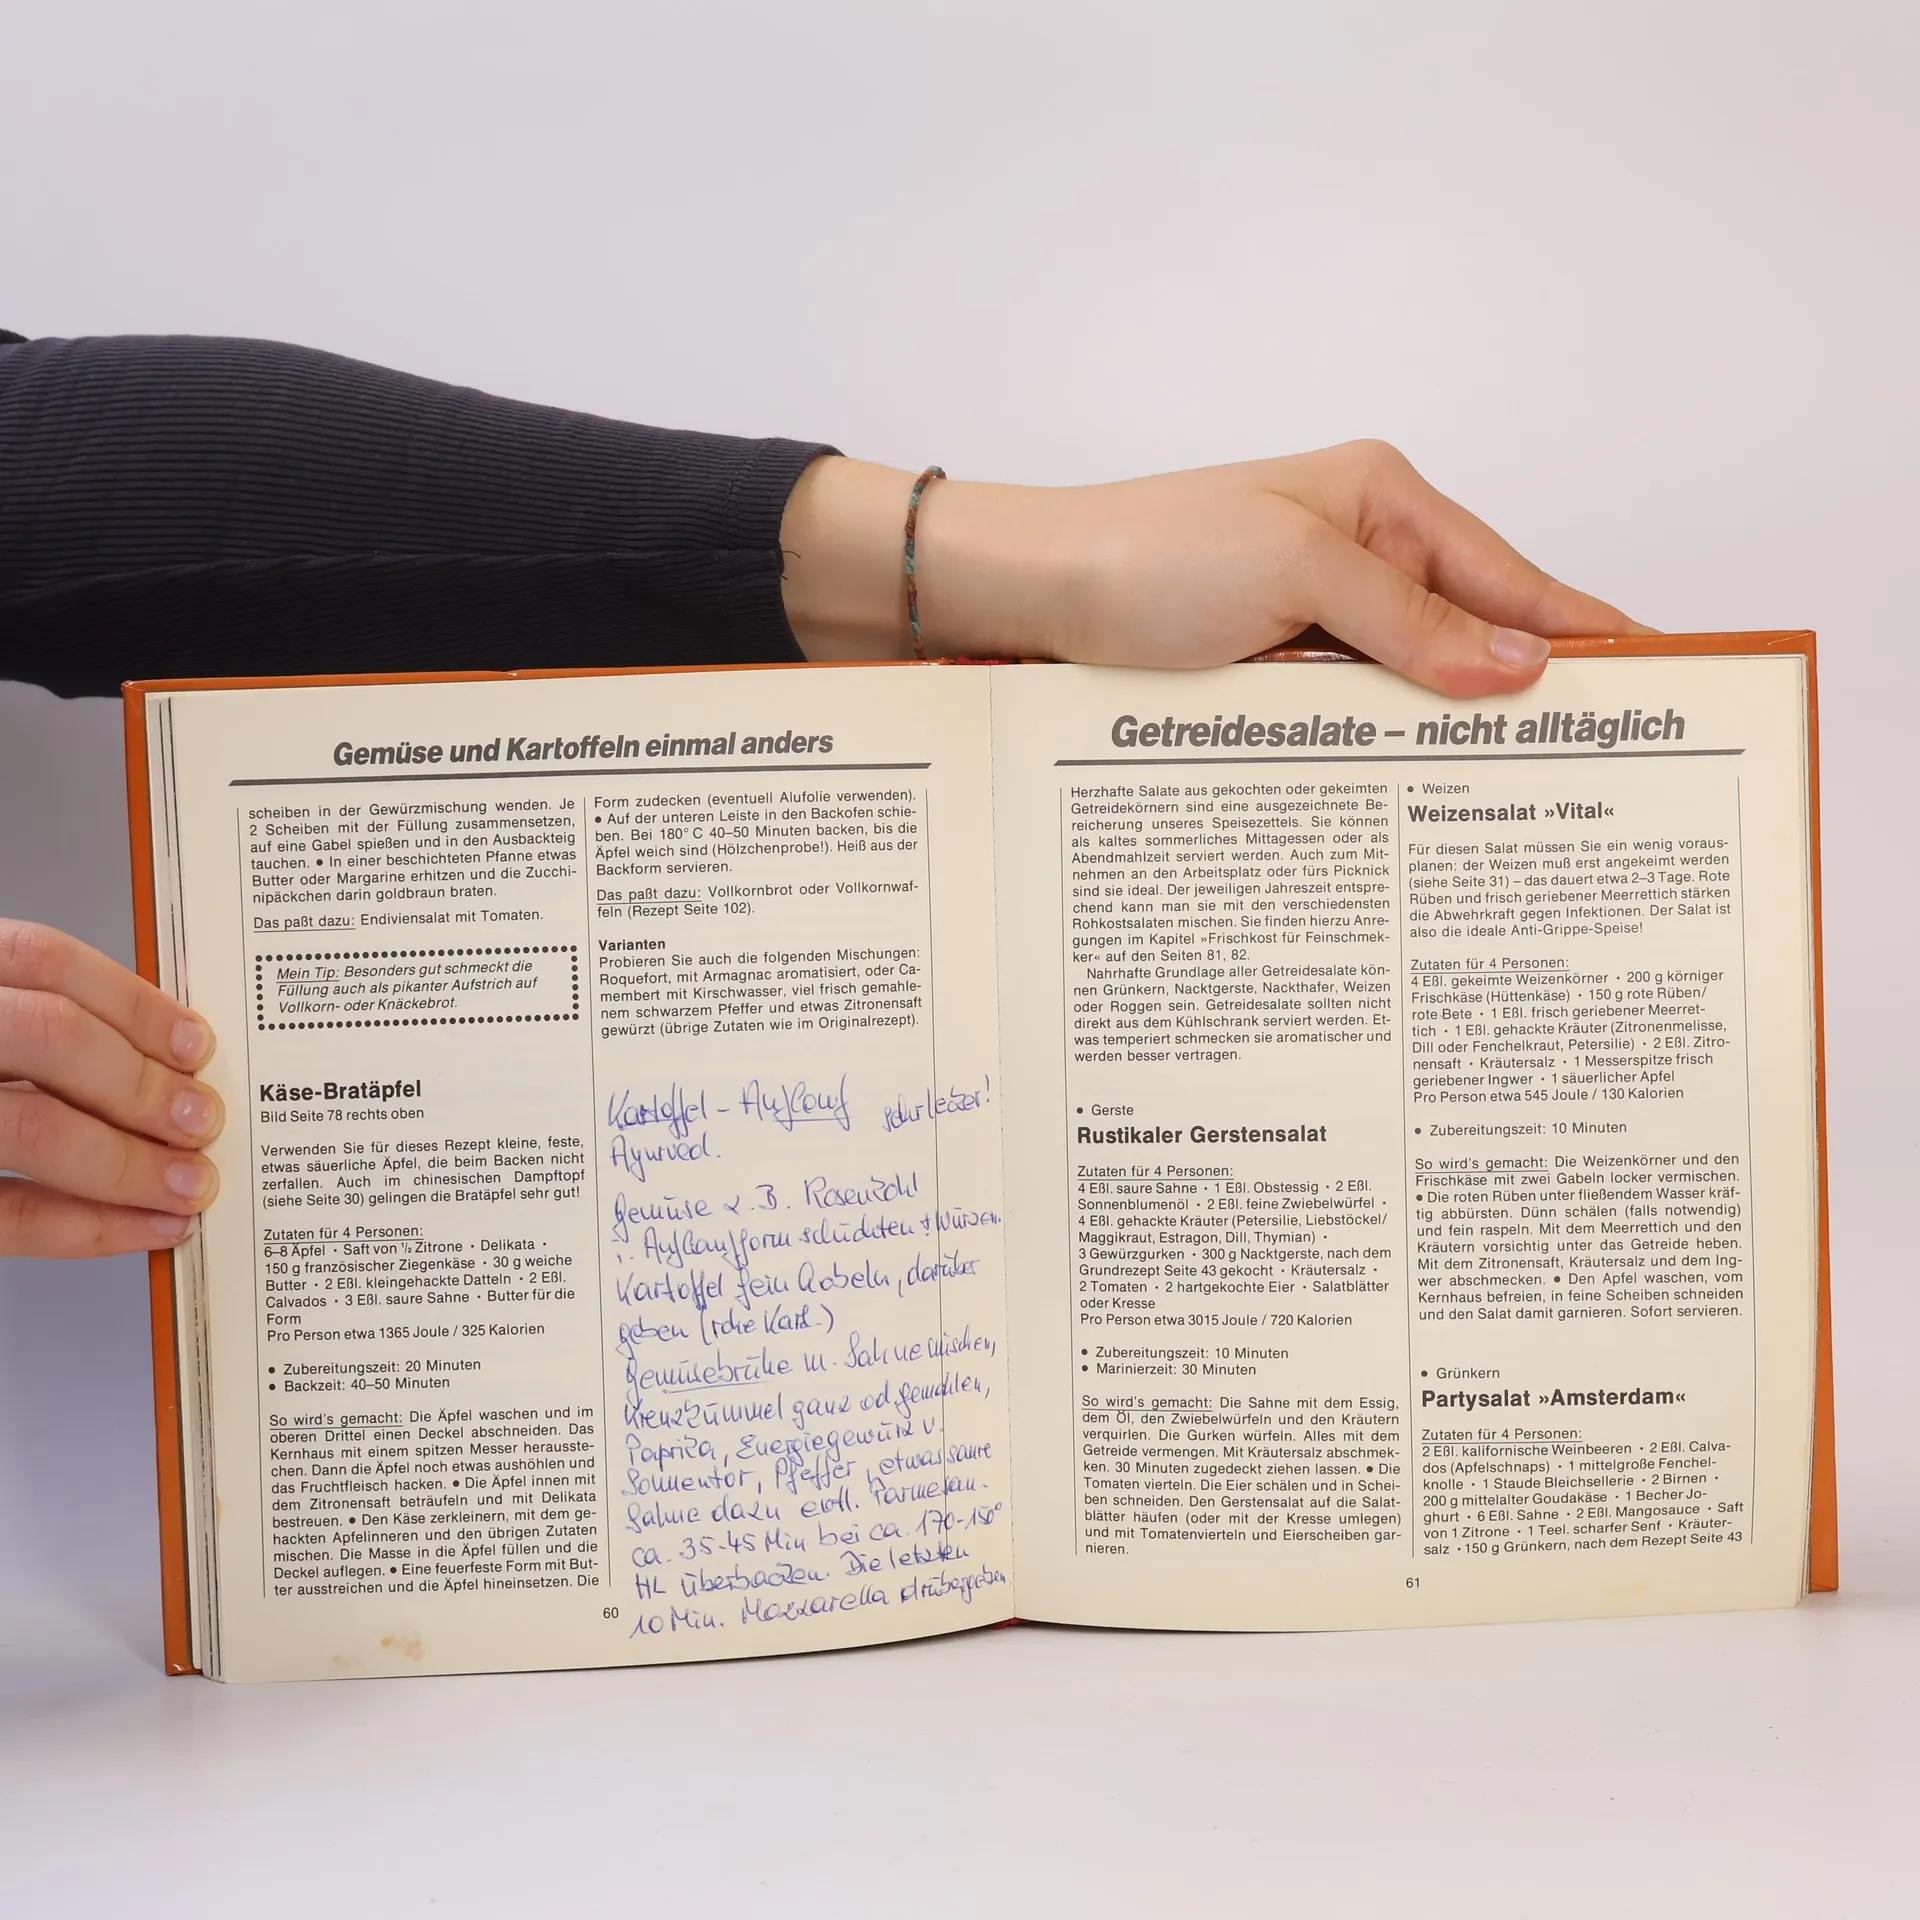 Gemüse und Kartoffeln einmal anders
scheiben in der Gewürzmischung wenden. Je
2 Scheiben mit der Füllung zusammensetzen,
auf eine Gabel spießen und in den Ausbackteig
tauchen. • In einer beschichteten Pfanne etwas
Butter oder Margarine erhitzen und die Zucchi-
nipäckchen darin goldbraun braten.
Das paßt dazu: Endiviensalat mit Tomaten.
Mein Tip: Besonders gut schmeckt die
Füllung auch als pikanter Aufstrich auf
Vollkorn- oder Knäckebrot.
Käse-Bratäpfel
Bild Seite 78 rechts oben
Verwenden Sie für dieses Rezept kleine, feste,
etwas säuerliche Äpfel, die beim Backen nicht
zerfallen. Auch im chinesischen Dampftopf
(siehe Seite 30) gelingen die Bratäpfel sehr gut!
Zutaten für 4 Personen:
6–8 Äpfel · Saft von ½ Zitrone · Delikata ·
150 g französischer Ziegenkäse · 30 g weiche
Butter · 2 Eßl. kleingehackte Datteln · 2 Eßl.
Calvados · 3 Eßl. saure Sahne · Butter für die
Form
Pro Person etwa 1365 Joule / 325 Kalorien
• Zubereitungszeit: 20 Minuten
• Backzeit: 40–50 Minuten
So wird's gemacht: Die Äpfel waschen und im
oberen Drittel einen Deckel abschneiden. Das
Kernhaus mit einem spitzen Messer herausste-
chen. Dann die Äpfel noch etwas aushöhlen und
das Fruchtfleisch hacken. • Die Äpfel innen mit
dem Zitronensaft beträufeln und mit Delikata
bestreuen. • Den Käse zerkleinern, mit dem ge-
hackten Apfelinneren und den übrigen Zutaten
mischen. Die Masse in die Äpfel füllen und die
Deckel auflegen. • Eine feuerfeste Form mit But-
ter ausstreichen und die Äpfel hineinsetzen. Die
Form zudecken (eventuell Alufolie verwenden).
• Auf der unteren Leiste in den Backofen schie-
ben. Bei 180° C 40–50 Minuten backen, bis die
Äpfel weich sind (Hölzchenprobe!). Heiß aus der
Backform servieren.
Das paßt dazu: Vollkornbrot oder Vollkornwaf-
feln (Rezept Seite 102).
Varianten
Probieren Sie auch die folgenden Mischungen:
Roquefort, mit Armagnac aromatisiert, oder Ca-
membert mit Kirschwasser, viel frisch gemahle-
nem schwarzem Pfeffer und etwas Zitronensaft
gewürzt (übrige Zutaten wie im Originalrezept).
Kartoffel-Auflauf sehr lecker!
Ayurved.
Gemüse z.B. Rosenkohl
Auflaufform schichten + würzen.
Kartoffel fein hobeln, darüber
geben (rohe Kart.)
Gemüsebrühe m. Sahne mischen,
Kreuzkümmel ganz od. gemahlen,
Paprika, Energiegewürz v.
Sonnentor, Pfeffer, etwas saure
Sahne dazu evtl. Parmesan.
ca. 35-45 Min bei ca. 170-150°
HL überbacken. Die letzten
10 Min. Mozzarella drübergeben.
60
Getreidesalate – nicht alltäglich
Herzhafte Salate aus gekochten oder gekeimten
Getreidekörnern sind eine ausgezeichnete Be-
reicherung unseres Speisezettels. Sie können
als kaltes sommerliches Mittagessen oder als
Abendmahlzeit serviert werden. Auch zum Mit-
nehmen an den Arbeitsplatz oder fürs Picknick
sind sie ideal. Der jeweiligen Jahreszeit entspre-
chend kann man sie mit den verschiedensten
Rohkostsalaten mischen. Sie finden hierzu Anre-
gungen im Kapitel »Frischkost für Feinschmek-
ker« auf den Seiten 81, 82.
Nahrhafte Grundlage aller Getreidesalate kön-
nen Grünkern, Nacktgerste, Nackthafer, Weizen
oder Roggen sein. Getreidesalate sollten nicht
direkt aus dem Kühlschrank serviert werden. Et-
was temperiert schmecken sie aromatischer und
werden besser vertragen.
• Gerste
Rustikaler Gerstensalat
Zutaten für 4 Personen:
4 Eßl. saure Sahne · 1 Eßl. Obstessig · 2 Eßl.
Sonnenblumenöl · 2 Eßl. feine Zwiebelwürfel ·
4 Eßl. gehackte Kräuter (Petersilie, Liebstöckel/
Maggikraut, Estragon, Dill, Thymian) ·
3 Gewürzgurken · 300 g Nacktgerste, nach dem
Grundrezept Seite 43 gekocht · Kräutersalz ·
2 Tomaten · 2 hartgekochte Eier · Salatblätter
oder Kresse
Pro Person etwa 3015 Joule / 720 Kalorien
• Zubereitungszeit: 10 Minuten
• Marinierzeit: 30 Minuten
So wird's gemacht: Die Sahne mit dem Essig,
dem Öl, den Zwiebelwürfeln und den Kräutern
verquirlen. Die Gurken würfeln. Alles mit dem
Getreide vermengen. Mit Kräutersalz abschmek-
ken. 30 Minuten zugedeckt ziehen lassen. • Die
Tomaten vierteln. Die Eier schälen und in Schei-
ben schneiden. Den Gerstensalat auf die Salat-
blätter häufen (oder mit der Kresse umlegen)
und mit Tomatenvierteln und Eierscheiben gar-
nieren.
• Weizen
Weizensalat »Vital«
Für diesen Salat müssen Sie ein wenig voraus-
planen: der Weizen muß erst angekeimt werden
(siehe Seite 31) – das dauert etwa 2–3 Tage. Rote
Rüben und frisch geriebener Meerrettich stärken
die Abwehrkraft gegen Infektionen. Der Salat ist
also die ideale Anti-Grippe-Speise!
Zutaten für 4 Personen:
4 Eßl. gekeimte Weizenkörner · 200 g körniger
Frischkäse (Hüttenkäse) · 150 g rote Rüben/
rote Bete · 1 Eßl. frisch geriebener Meerret-
tich · 1 Eßl. gehackte Kräuter (Zitronenmelisse,
Dill oder Fenchelkraut, Petersilie) · 2 Eßl. Zitro-
nensaft · Kräutersalz · 1 Messerspitze frisch
geriebener Ingwer · 1 säuerlicher Apfel
Pro Person etwa 545 Joule / 130 Kalorien
• Zubereitungszeit: 10 Minuten
So wird's gemacht: Die Weizenkörner und den
Frischkäse mit zwei Gabeln locker vermischen.
• Die roten Rüben unter fließendem Wasser kräf-
tig abbürsten. Dünn schälen (falls notwendig)
und fein raspeln. Mit dem Meerrettich und den
Kräutern vorsichtig unter das Getreide heben.
Mit dem Zitronensaft, Kräutersalz und dem Ing-
wer abschmecken. • Den Apfel waschen, vom
Kernhaus befreien, in feine Scheiben schneiden
und den Salat damit garnieren. Sofort servieren.
• Grünkern
Partysalat »Amsterdam«
Zutaten für 4 Personen:
2 Eßl. kalifornische Weinbeeren · 2 Eßl. Calva-
dos (Apfelschnaps) · 1 mittelgroße Fenchel-
knolle · 1 Staude Bleichsellerie · 2 Birnen ·
200 g mittelalter Goudakäse · 1 Becher Jo-
ghurt · 6 Eßl. Sahne · 2 Eßl. Mangosauce · Saft
von 1 Zitrone · 1 Teel. scharfer Senf · Kräuter-
salz · 150 g Grünkern, nach dem Rezept Seite 43
61